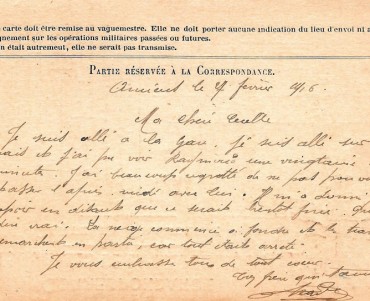 carte doit être remise au vaguemestre. Elle ne doit porter aucune indication du lieu d'envoi ni a
gnement sur les opérations militaires passées ou futures.
n était autrement, elle ne serait pas transmise.
PARTIE RÉSERVÉE À LA CORRESPONDANCE.
le février 1916.
Ma chère
Je suis allé à la gare, je suis allé sur
mais et j'ai pu voir une vingtaine
minutes. J'ai beaucoup de ne pas pouvoi
passer l'après midi avec lui. Il m'a donné
espoir en disant que ce serait bientôt fini.
vrai. La neige commence à fondre et le tra
en car tout était arrêté.
Je vous embrasse tous de tout cœur.
frère qui t'aime